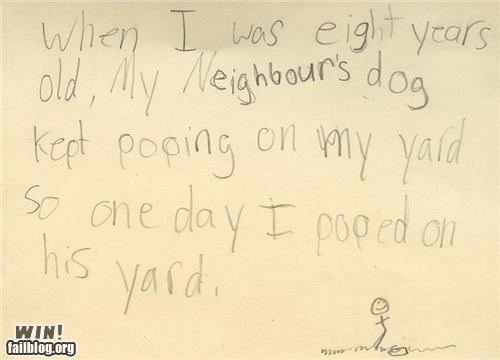 When I was eight years
old, My Neighbour's dog
kept poping on my yard
so one day I poped on
his yard.
WIN!
failblog.org